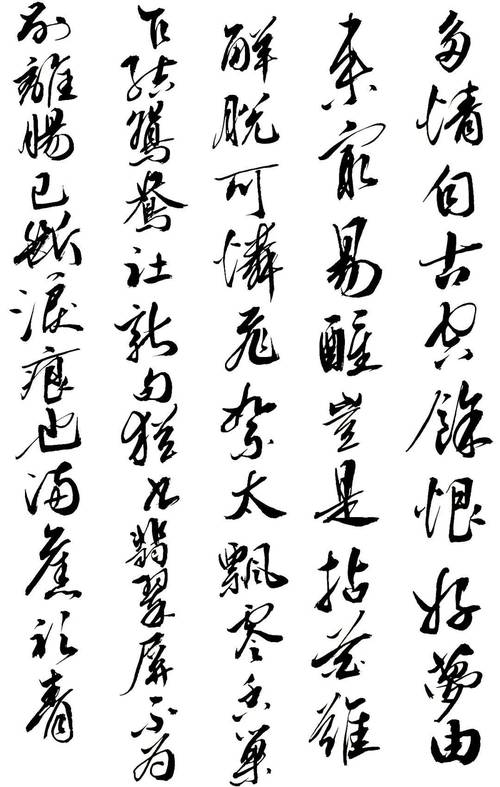 多情自古空餘恨好夢由
來最易醒豈是拈花難
解脫可憐飛絮太飄零香巢
乍結鴛鴦社新句猶書翡翠屏不為
別離腸已斷淚痕也滿舊衫青